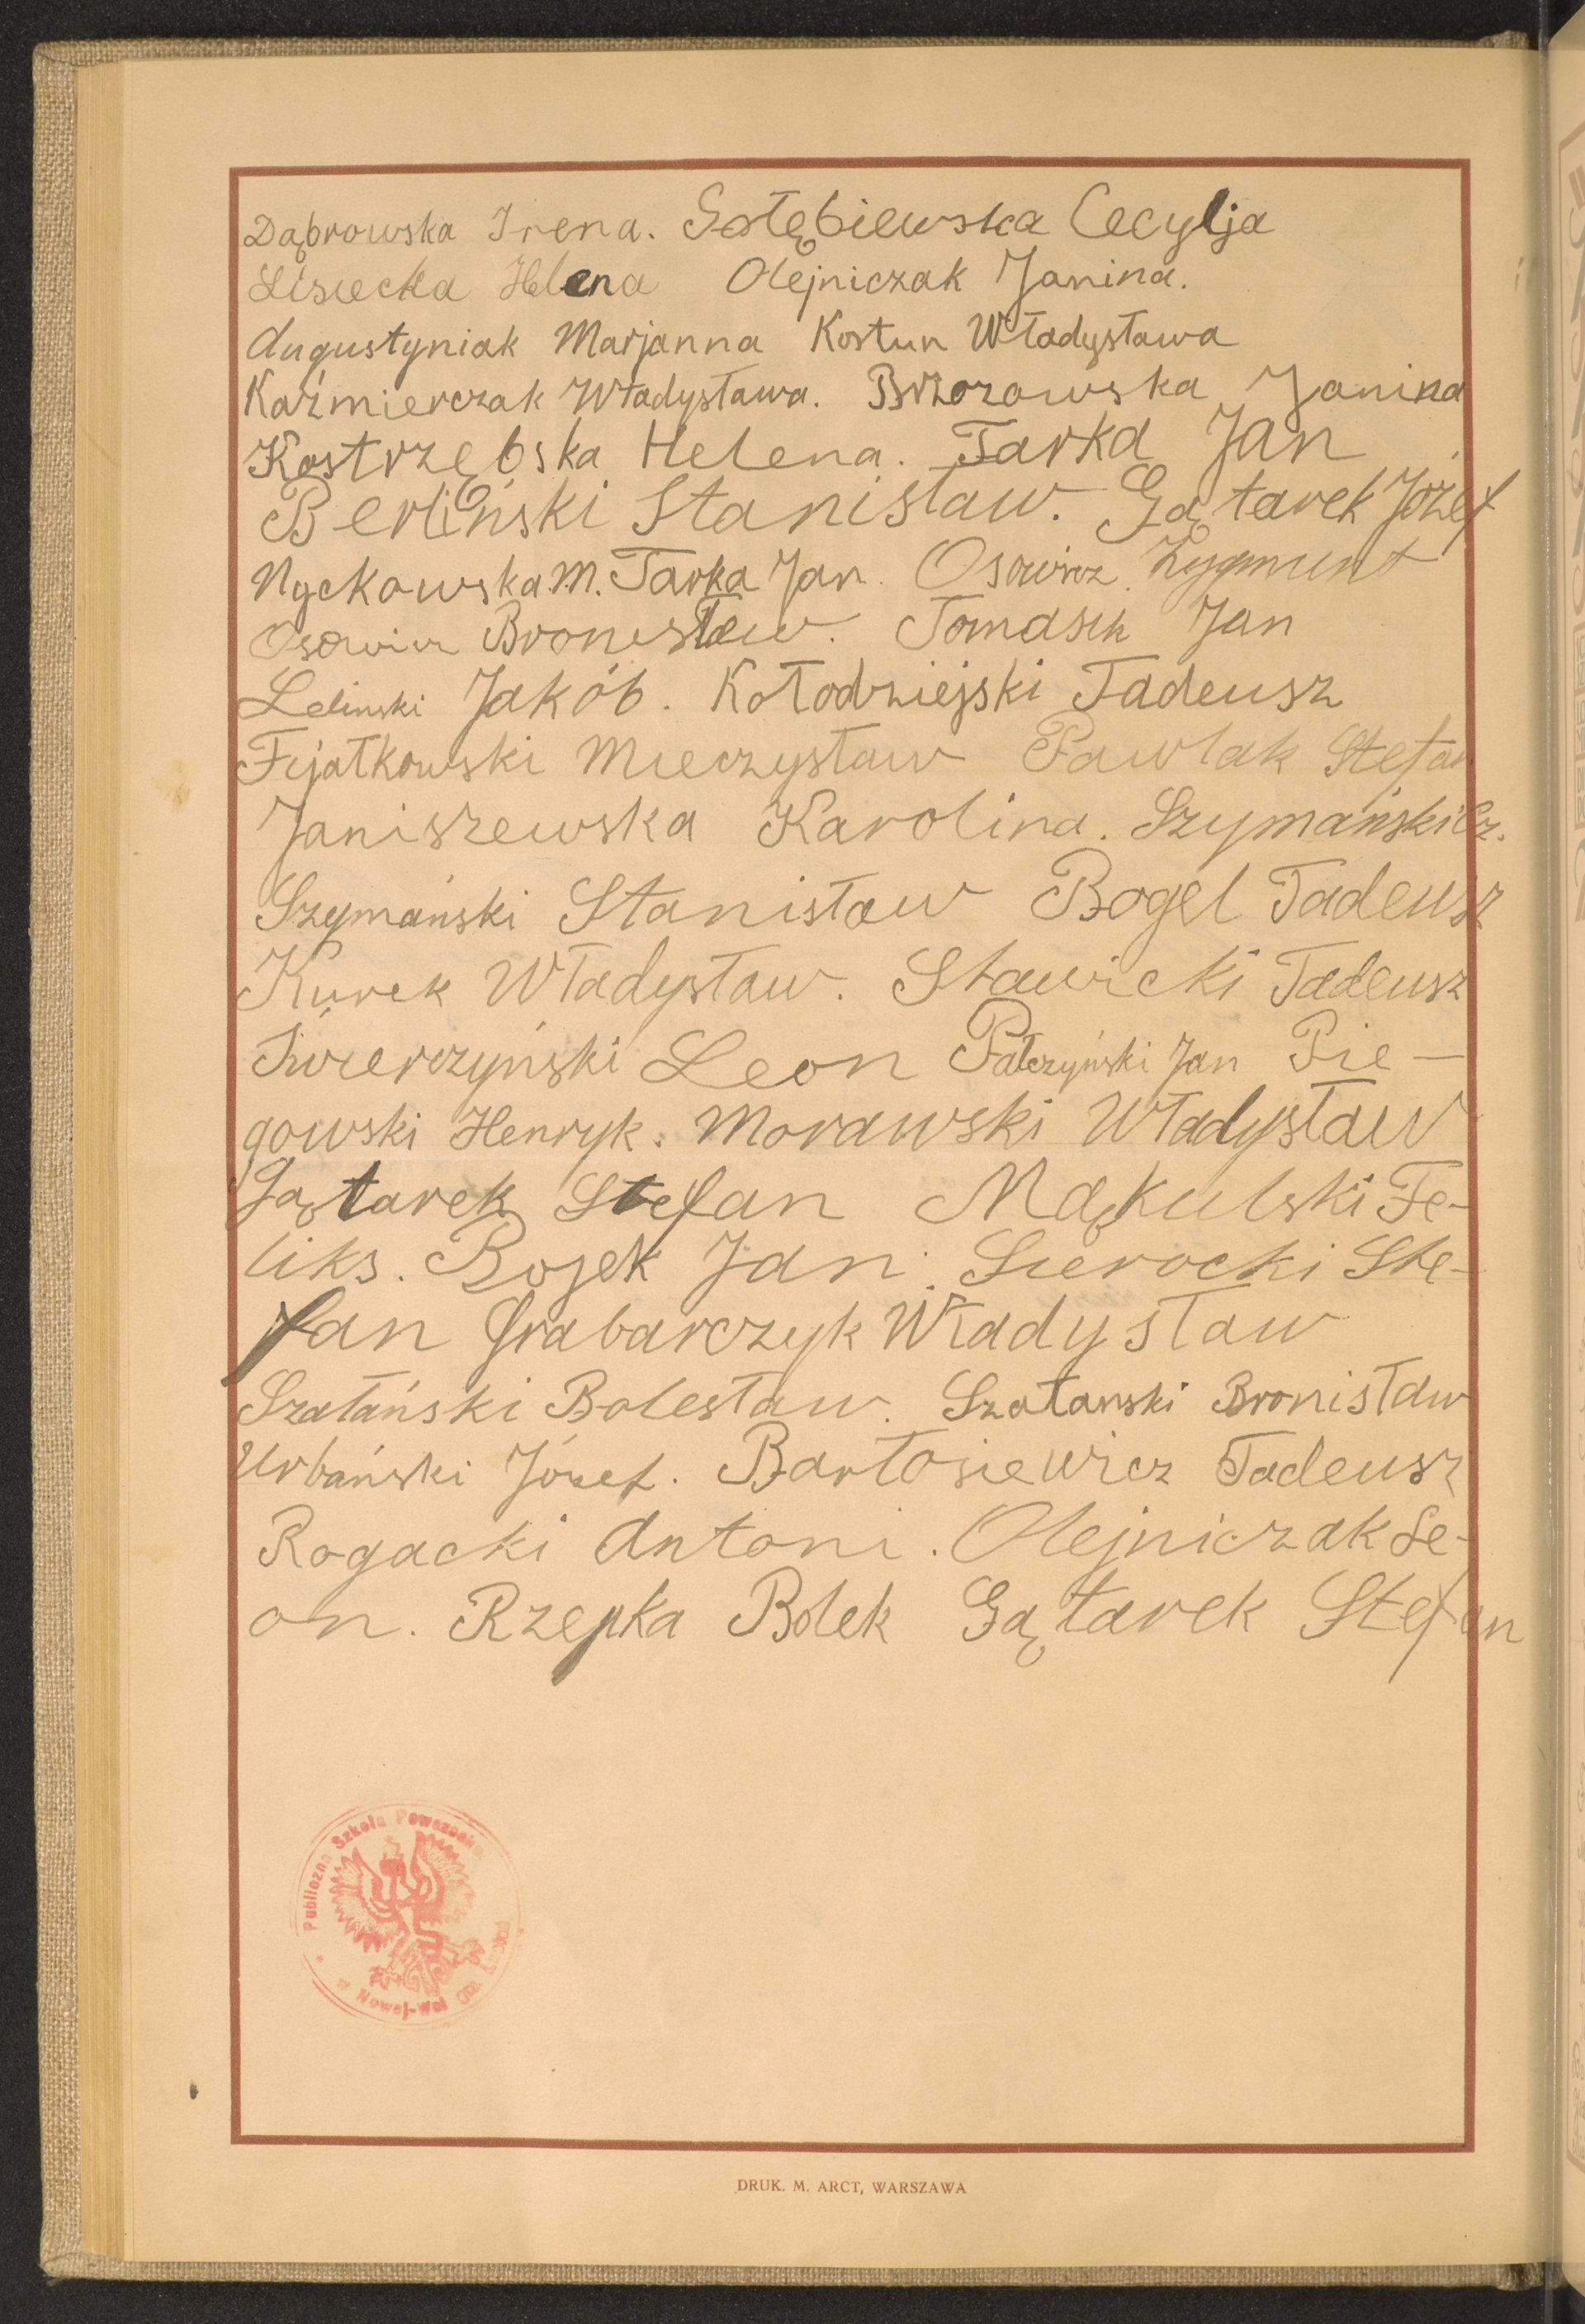 Dąbrowska Irena. Gołębiewska Cecylja
Lisiecka Helena Olejniczak Janina.
Augustyniak Marjanna Kostun Władysława
Kaźmierczak Władysława. Brzozowska Janina
Kostrzębska Helena. Tarka Jan
Berliński Stanisław. Gątarek Józef
Nyckowska M. Tarka Jan. Osowicz Zygmunt
Bronisław. Tomasik Jan
Leliński Jakób. Kołodziejski Tadeusz
Fijałkowski Mieczysław Pawlak Stefan
Janiszewska Karolina. Szymański Cz.
Szymański Stanisław Bogel Tadeusz
Kurek Władysław. Sławicki Tadeusz
Świerczyński Leon Palczyński Jan Pie-
gowski Henryk. Morawski Władysław
Gątarek Stefan Mąkulski Fe-
liks. Bojek Jan. Sierocki Ste-
fan Grabarczyk Władysław
Szatański Bolesław. Szatanski Bronisław
Urbański Józef. Bartosiewicz Tadeusz
Rogacki Antoni. Olejniczak Le-
on. Rzepka Bolek Gątarek Stefan
Publiczna Szkoła Powszechna
w Nowej-wsi
DRUK. M. ARCT, WARSZAWA